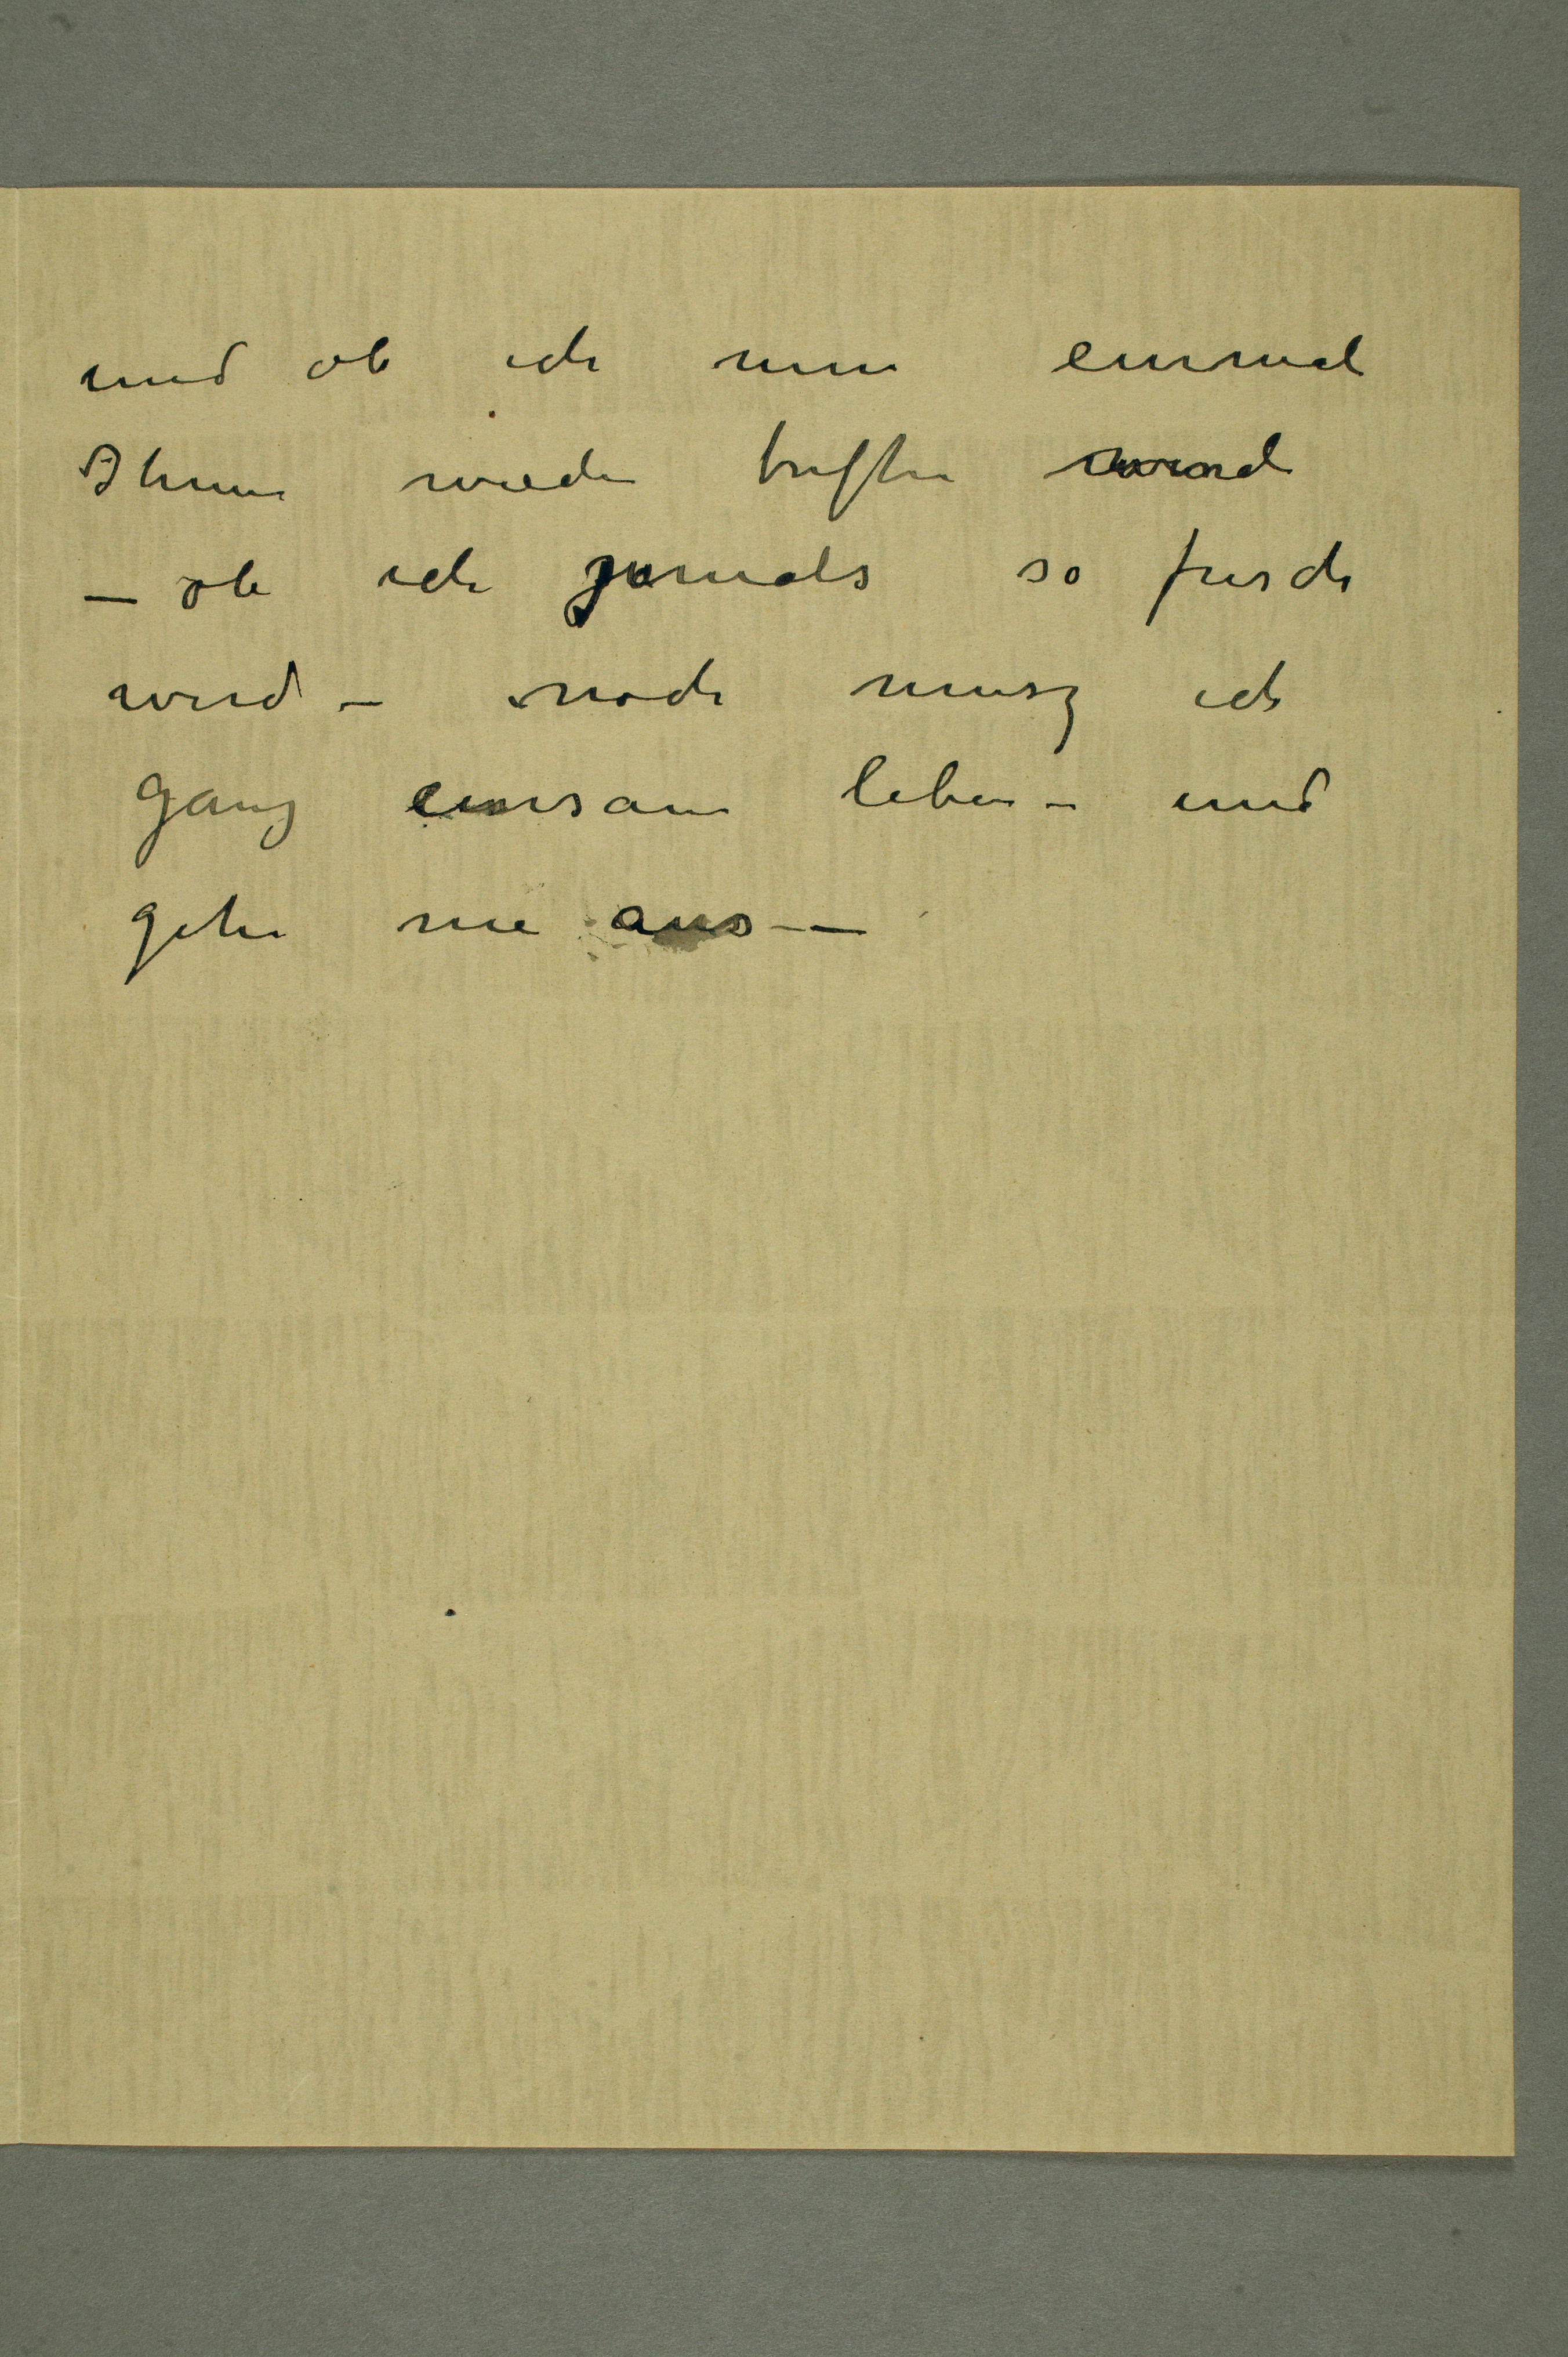 und ob ich nun einmal
Ihnen wieder treffen werde
– ob ich jemals so frisch
werd – noch musz ich
ganz einsam leben – und
gehe nie aus – –